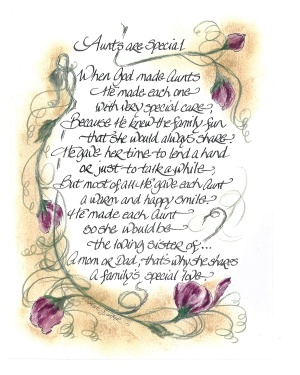 Aunts are Special
When God made Aunts
He made each one
with very special care,
Because He knew the family fun
that she would always share.
He gave her time to lend a hand
or just to talk a while,
But most of all-He gave each Aunt
a warm and happy smile.
He made each Aunt
so she would be
the loving sister of...
A mom or Dad, that's why she shares
a family's special love